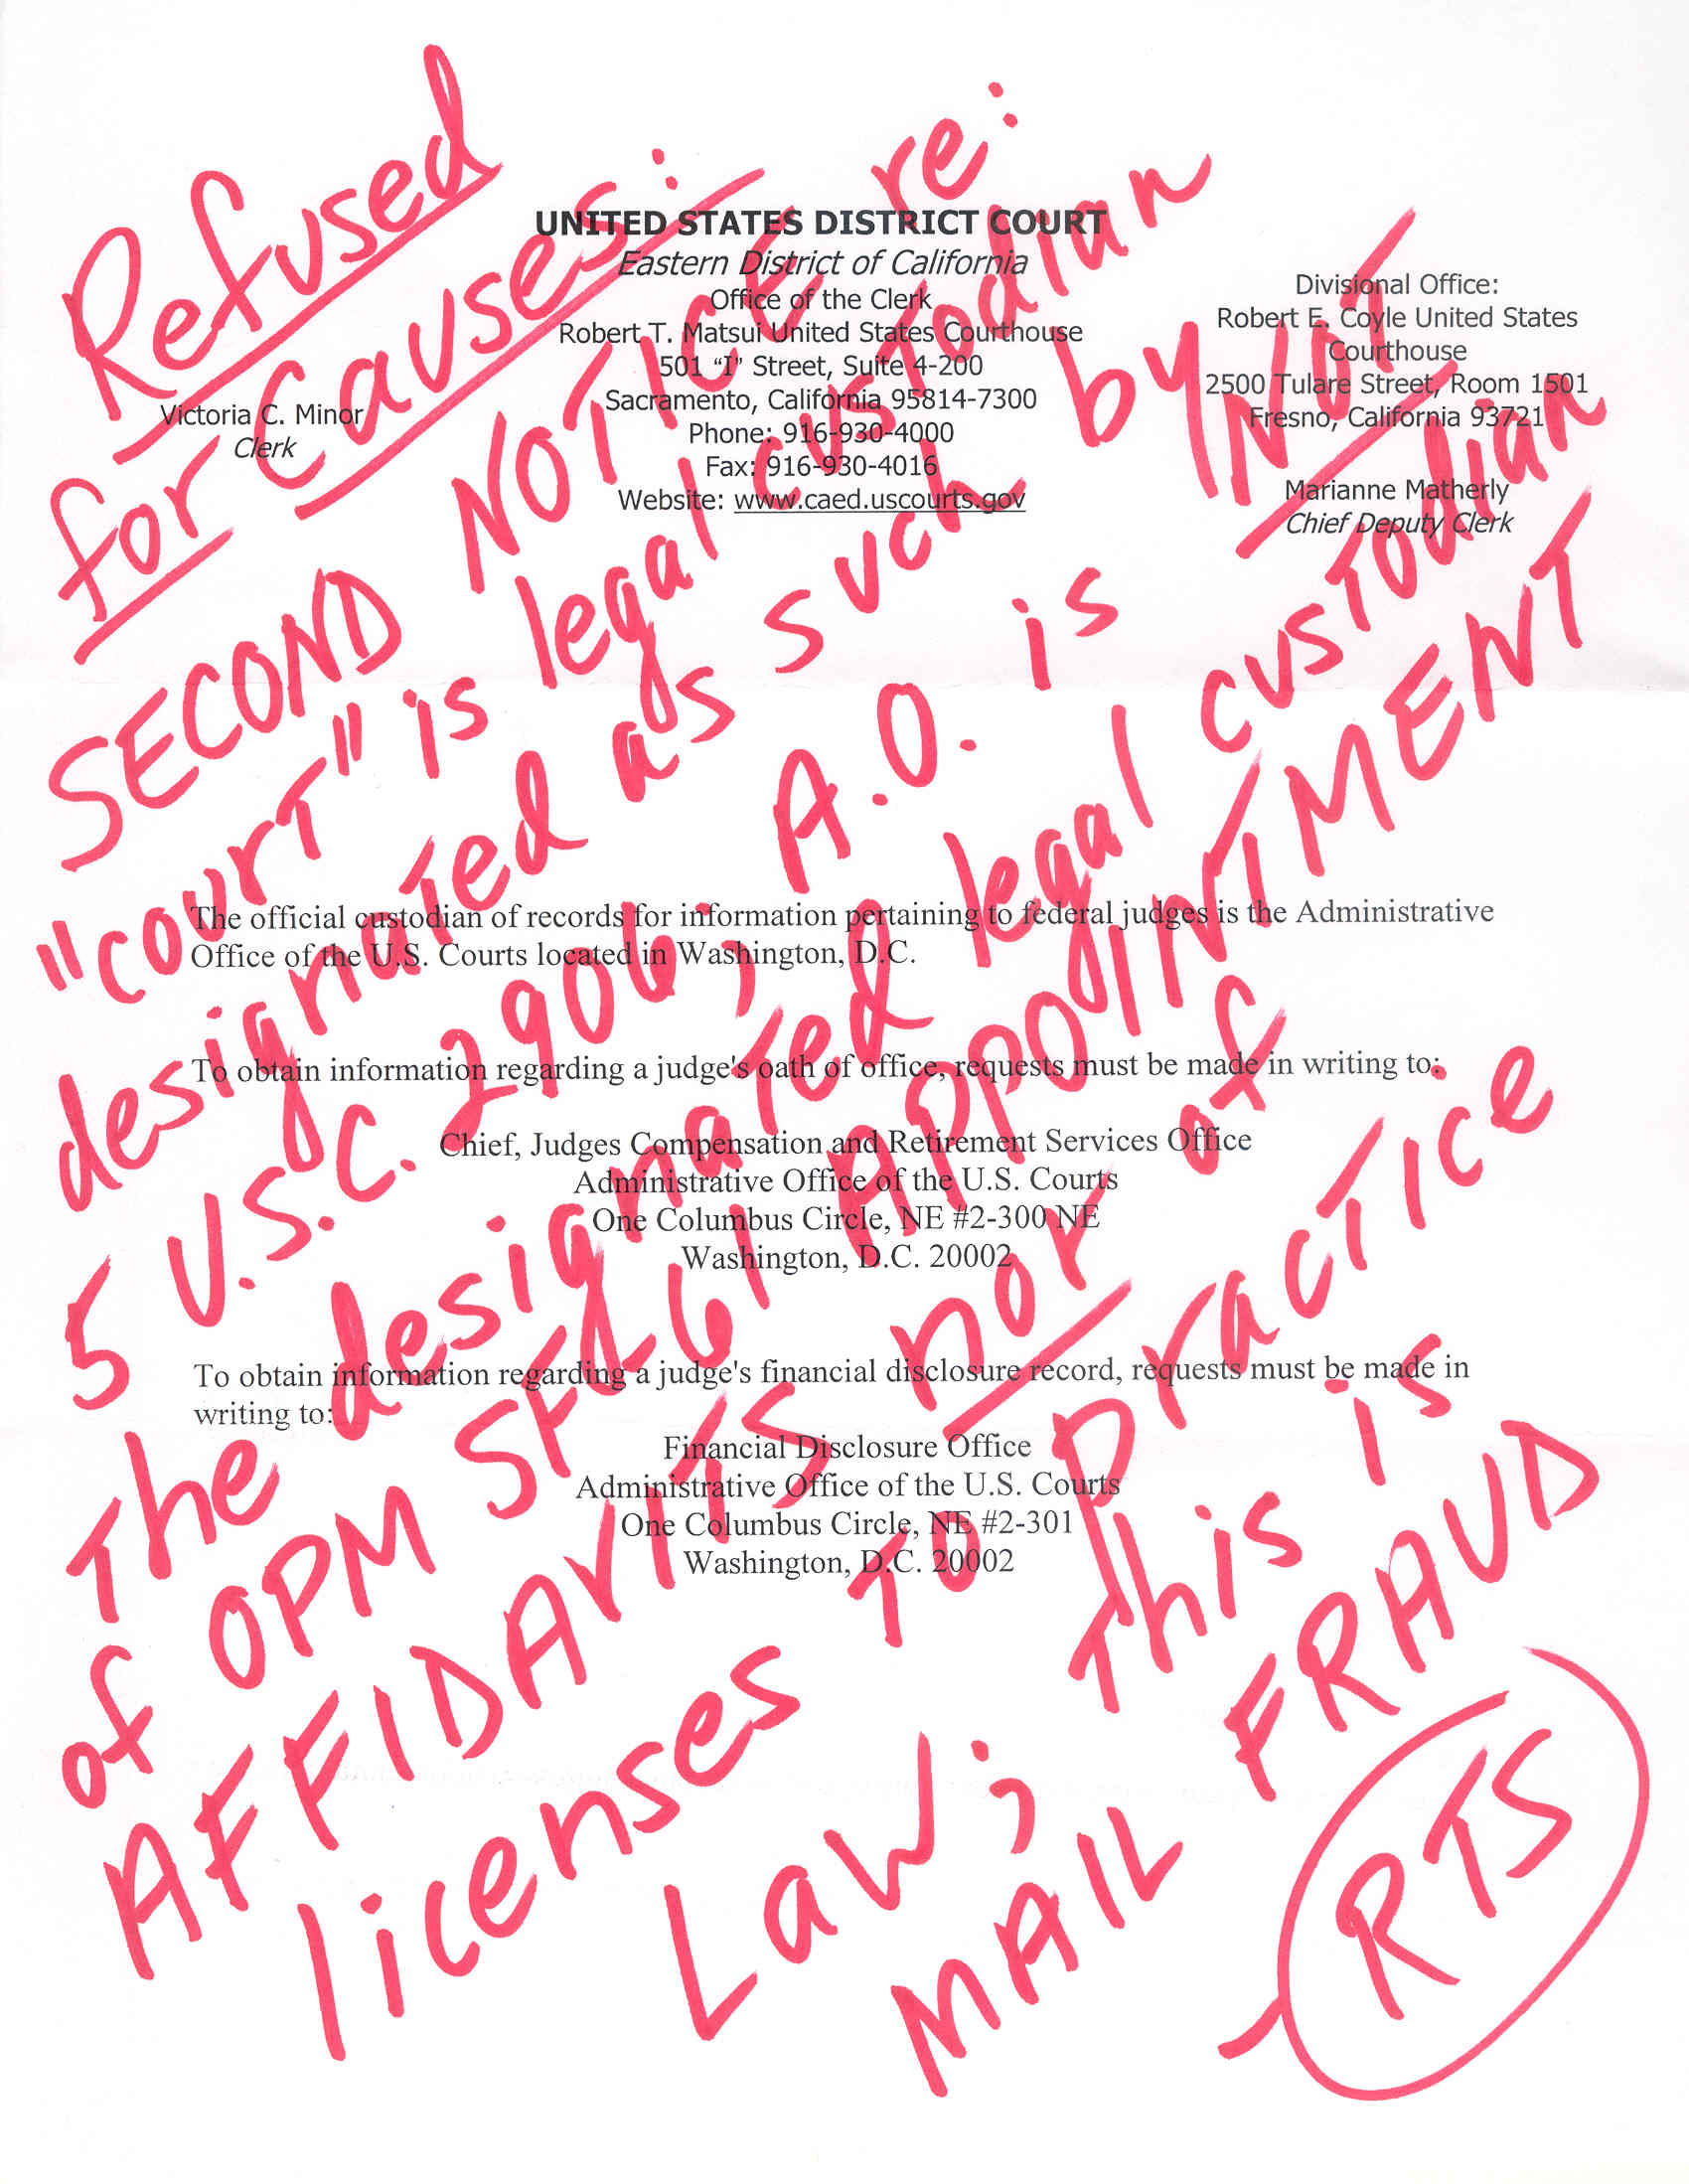 Refused
for Causes:
SECOND NOTICE re:
"courT" is legal cusTodian
designaTed as such by
5 U.S.C. 2906; A.O. is NOT
The designaTed legal cusTodian
of OPM SF-61 APPOINTMENT
AFFIDAVITS nor of
licenses To pracTice
Law; This is
MAIL FRAUD
RTS
UNITED STATES DISTRICT COURT
Eastern District of California
Office of the Clerk
Robert T. Matsui United States Courthouse
501 “I” Street, Suite 4-200
Sacramento, California 95814-7300
Phone: 916-930-4000
Fax: 916-930-4016
Website: www.caed.uscourts.gov
Victoria C. Minor
Clerk
Divisional Office:
Robert E. Coyle United States
Courthouse
2500 Tulare Street, Room 1501
Fresno, California 93721
Marianne Matherly
Chief Deputy Clerk
The official custodian of records for information pertaining to federal judges is the Administrative
Office of the U.S. Courts located in Washington, D.C.
To obtain information regarding a judge's oath of office, requests must be made in writing to:
Chief, Judges Compensation and Retirement Services Office
Administrative Office of the U.S. Courts
One Columbus Circle, NE #2-300 NE
Washington, D.C. 20002
To obtain information regarding a judge's financial disclosure record, requests must be made in
writing to:
Financial Disclosure Office
Administrative Office of the U.S. Courts
One Columbus Circle, NE #2-301
Washington, D.C. 20002